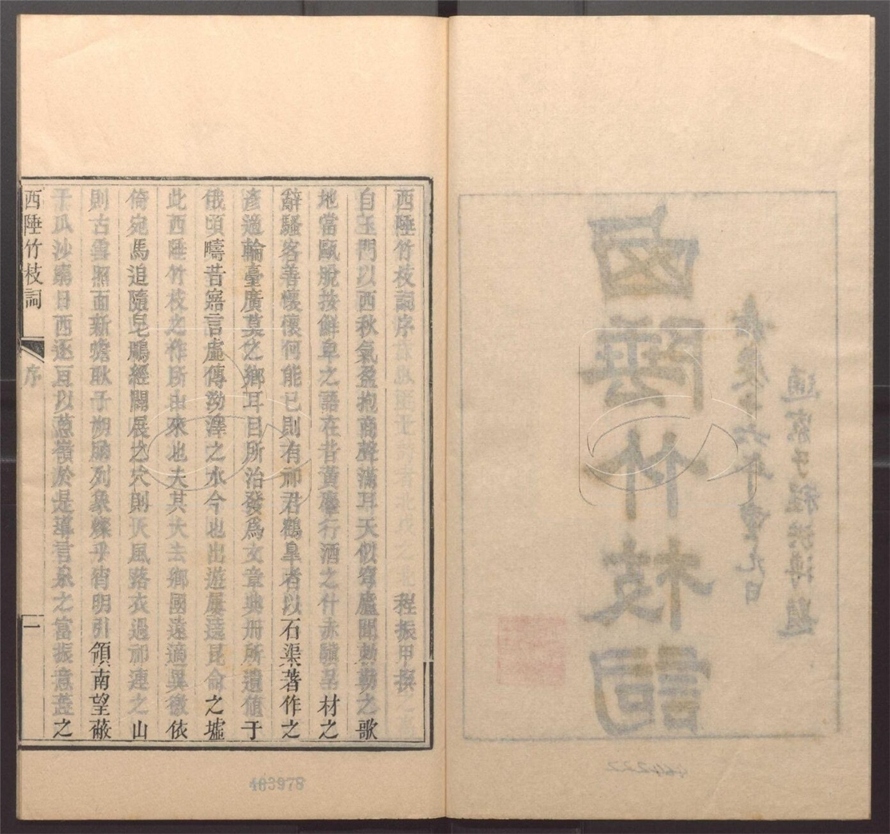 西陲竹枝詞
嘉慶十六年重九日
通家子程洪溥題
西陲竹枝詞序
程振甲撰
自玉門以西秋氣盈抱商聲滿耳天似穹廬聞勅勒之歌
地當甌脫按鮮卑之語在昔黃麞行酒之什赤驥呈材之
辭騷客善懷懷何能已則有祁君鶴皋者以石渠著作之
彥適輪臺廣莫之鄉耳目所治發爲文章典册所遺值于
俄頃疇昔寤言虛傳泑澤之水今也出遊屢遶昆侖之墟
此西陲竹枝之作所由來也夫其大去鄉國遠適異徼依
倚宛馬追隨皂鵰經開展之穴則天風落衣過祁連之山
則古雪照面新蟾耿于列象燦乎宵明引領南望蔽
于瓜沙窮日西逐亙以蔥嶺於是導言泉之富振意蕊之
西陲竹枝詞
序
一
403978